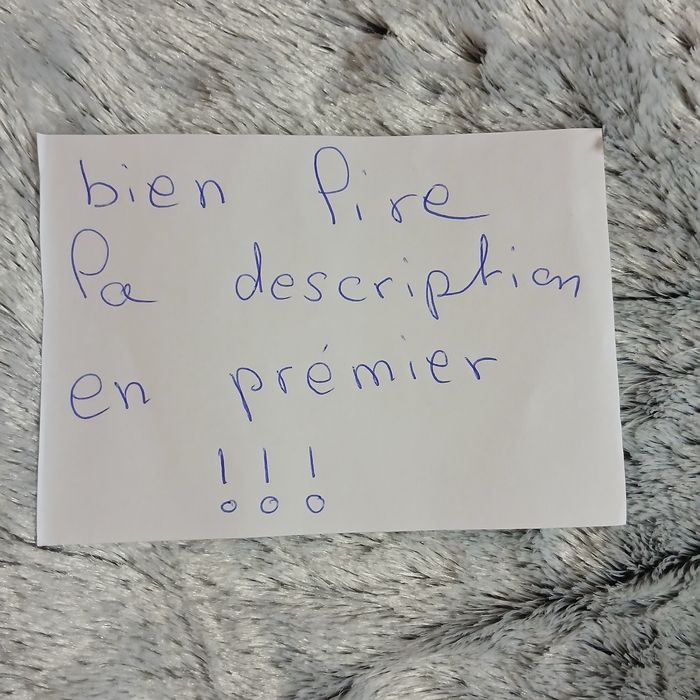 bien lire
la description
en prémier
!!!